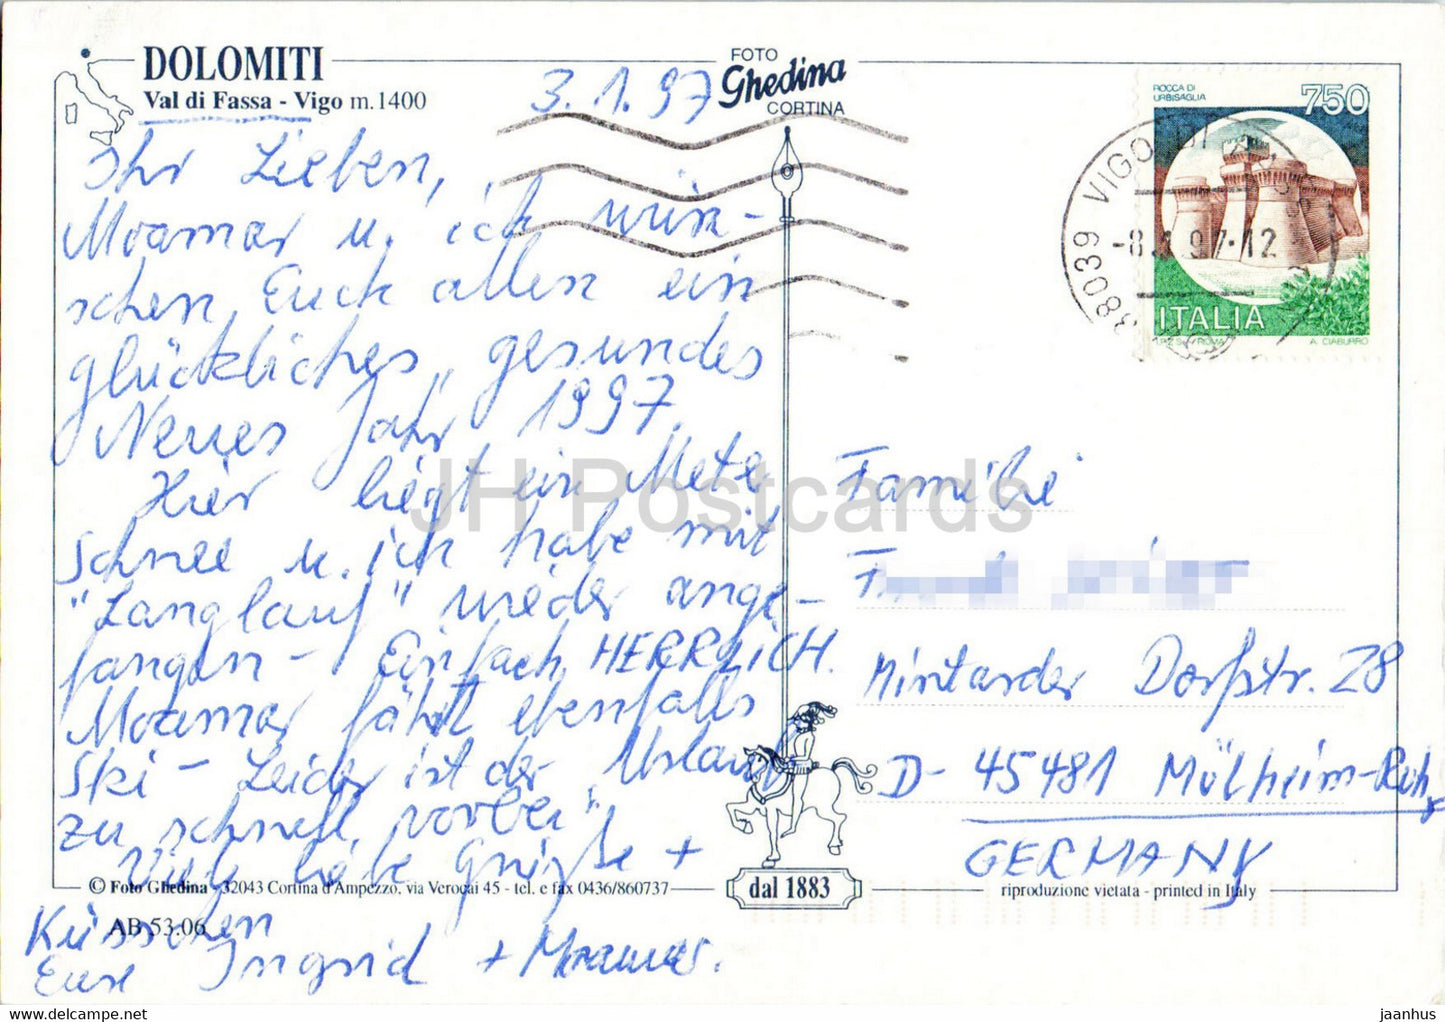 DOLOMITI
Val di Fassa - Vigo m.1400
FOTO
Ghedina
CORTINA
3. 1. 97
Ihr Lieben,
Moamar u. ich wün-
schen Euch allen ein
glückliches, gesundes
Neues Jahr 1997.
Hier liegt ein Meter
Schnee u. ich habe mit
"Langlauf" wieder ange-
fangen - Einfach HERRLICH.
Moamar fährt ebenfalls
Ski - Leider ist der Urlaub
zu schnell vorbei"
Viele liebe Grüße +
Küsschen
Eure Ingrid + Moamar.
ROCCA DI
URBISAGLIA
750
ITALIA
I.P.Z.S. - ROMA
A. CIABURRO
38039 VIGO DI
-8.1.97-12
Familie
Mintarder Dorfstr. 28
D- 45481 Mülheim-Ruhr
GERMANY
© Foto Ghedina - 32043 Cortina d'Ampezzo, via Verocai 45 - tel. e fax 0436/860737
dal 1883
riproduzione vietata - printed in Italy
AB.53.06
JH Postcards
jaanhus